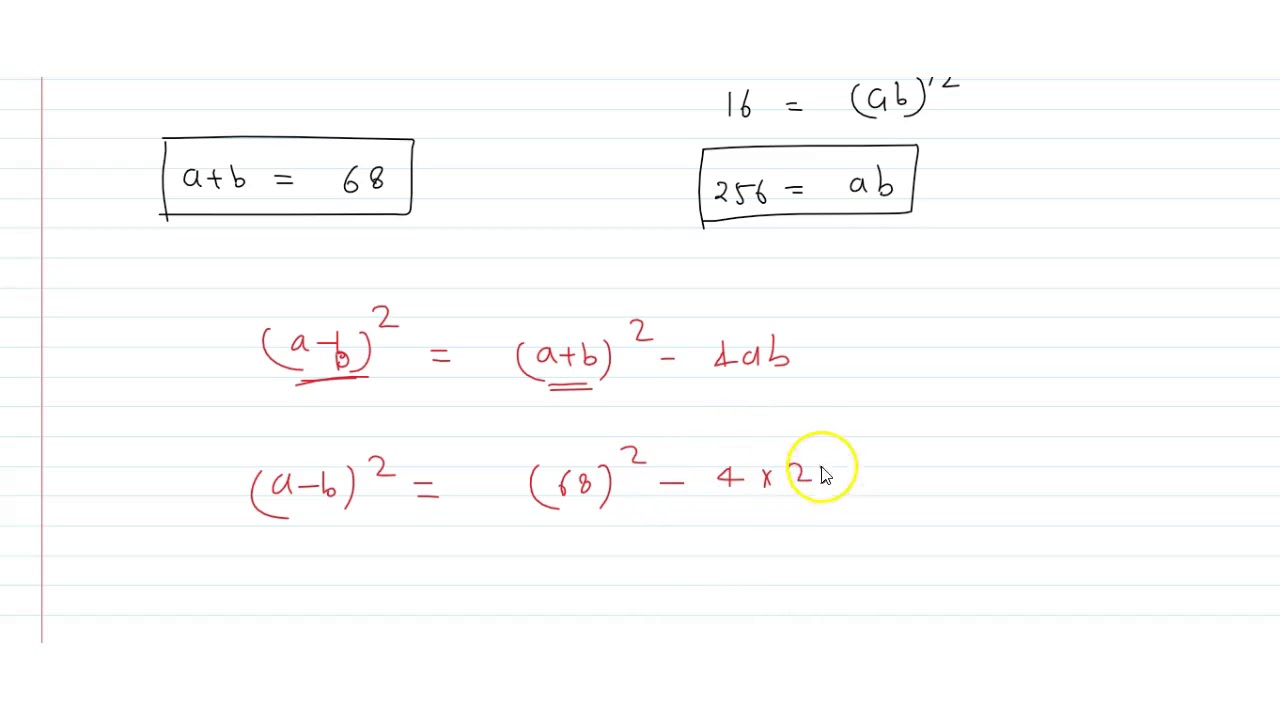 16 = (ab)^1/2
a+b = 68
256 = ab
(a-b)^2 = (a+b)^2 - 4ab
(a-b)^2 = (68)^2 - 4 x 2